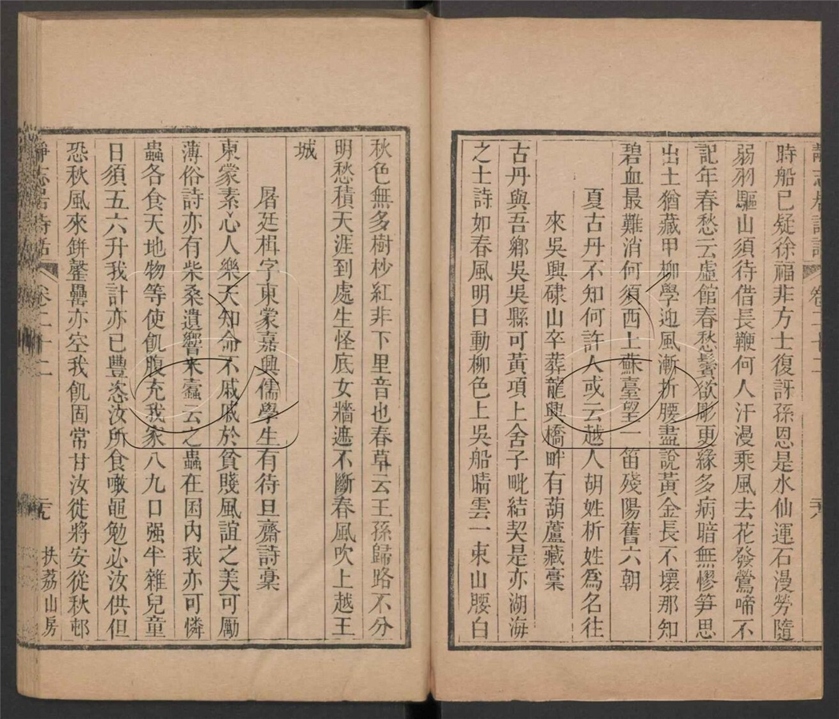 靜志居詩話 卷二十二 二十八
時船已疑徐福非方士復訝孫恩是水仙運石漫勞隨
弱羽驅山須待借長鞭何人汗漫乘風去花發鶯啼不
記年春愁云虛館春愁鬢欲彫更緣多病暗無憀笋思
出土猶藏甲柳學迎風漸折腰盡說黃金長不壞那知
碧血最難消何須西上蘇臺望一笛殘陽舊六朝
夏古丹不知何許人或云越人胡姓析姓爲名往
來吳興硉山卒葬龍興橋畔有葫蘆藏稾
古丹與吾鄉吳吳縣可黃項上舍子毗結契是亦湖海
之士詩如春風明日動柳色上吳船晴雲一東山腰白
秋色無多樹杪紅非下里音也春草云王孫歸路不分
明愁積天涯到處生怪底女牆遮不斷春風吹上越王
城
屠廷楫字東蒙嘉興儒學生有待旦齋詩稾
東蒙素心人樂天知命不戚戚於貧賤風誼之美可勵
薄俗詩亦有柴桑遺響米蠹云之蟲在囷內我亦可憐
蟲各食天地物等使飢腹充我家八九口强半雜兒童
日須五六升我計亦已豐恣汝所食噉黽勉必汝供但
恐秋風來缾罄罍亦空我飢固常甘汝徙將安從秋邨
靜志居詩話 卷二十二 二十九 扶荔山房